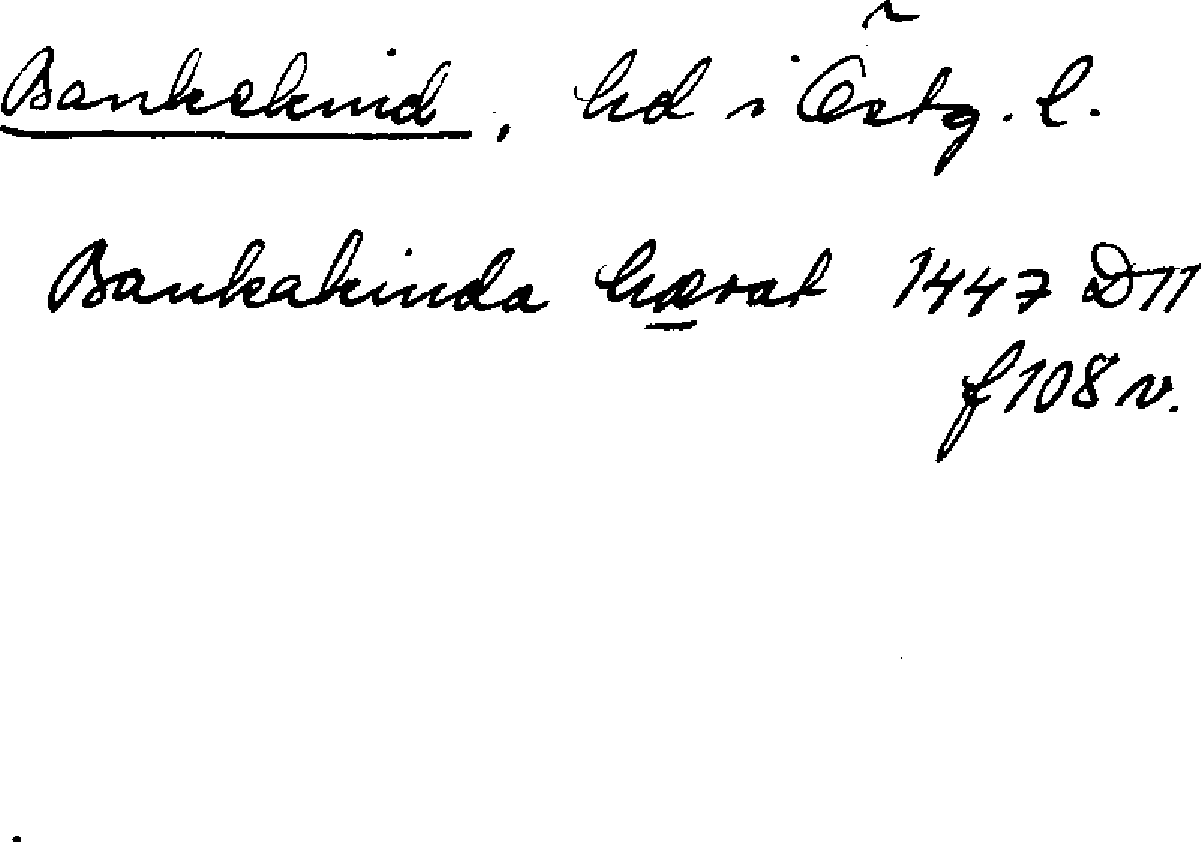 Bankekind, hd i Östg. l.
Bankakinda hærat 1447 D11
f 108 v.